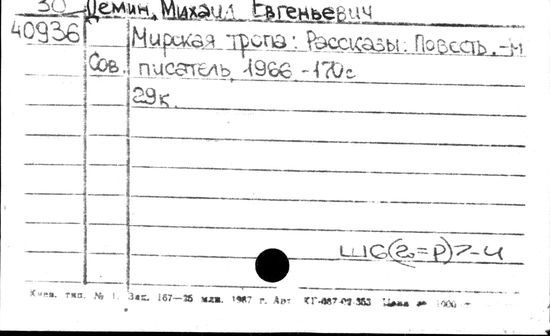 30 Демин, Михаил Евгеньевич
40936 Мирская тропа: Рассказы: Повесть. -М
Сов. писатель, 1966 -170с
29к.
Ш6(2=Р)7-4
Киев. тип. № 1. Зак. 167—25 млн. 1987 г. Арт. КГ-087-02-353 Цена за 1000